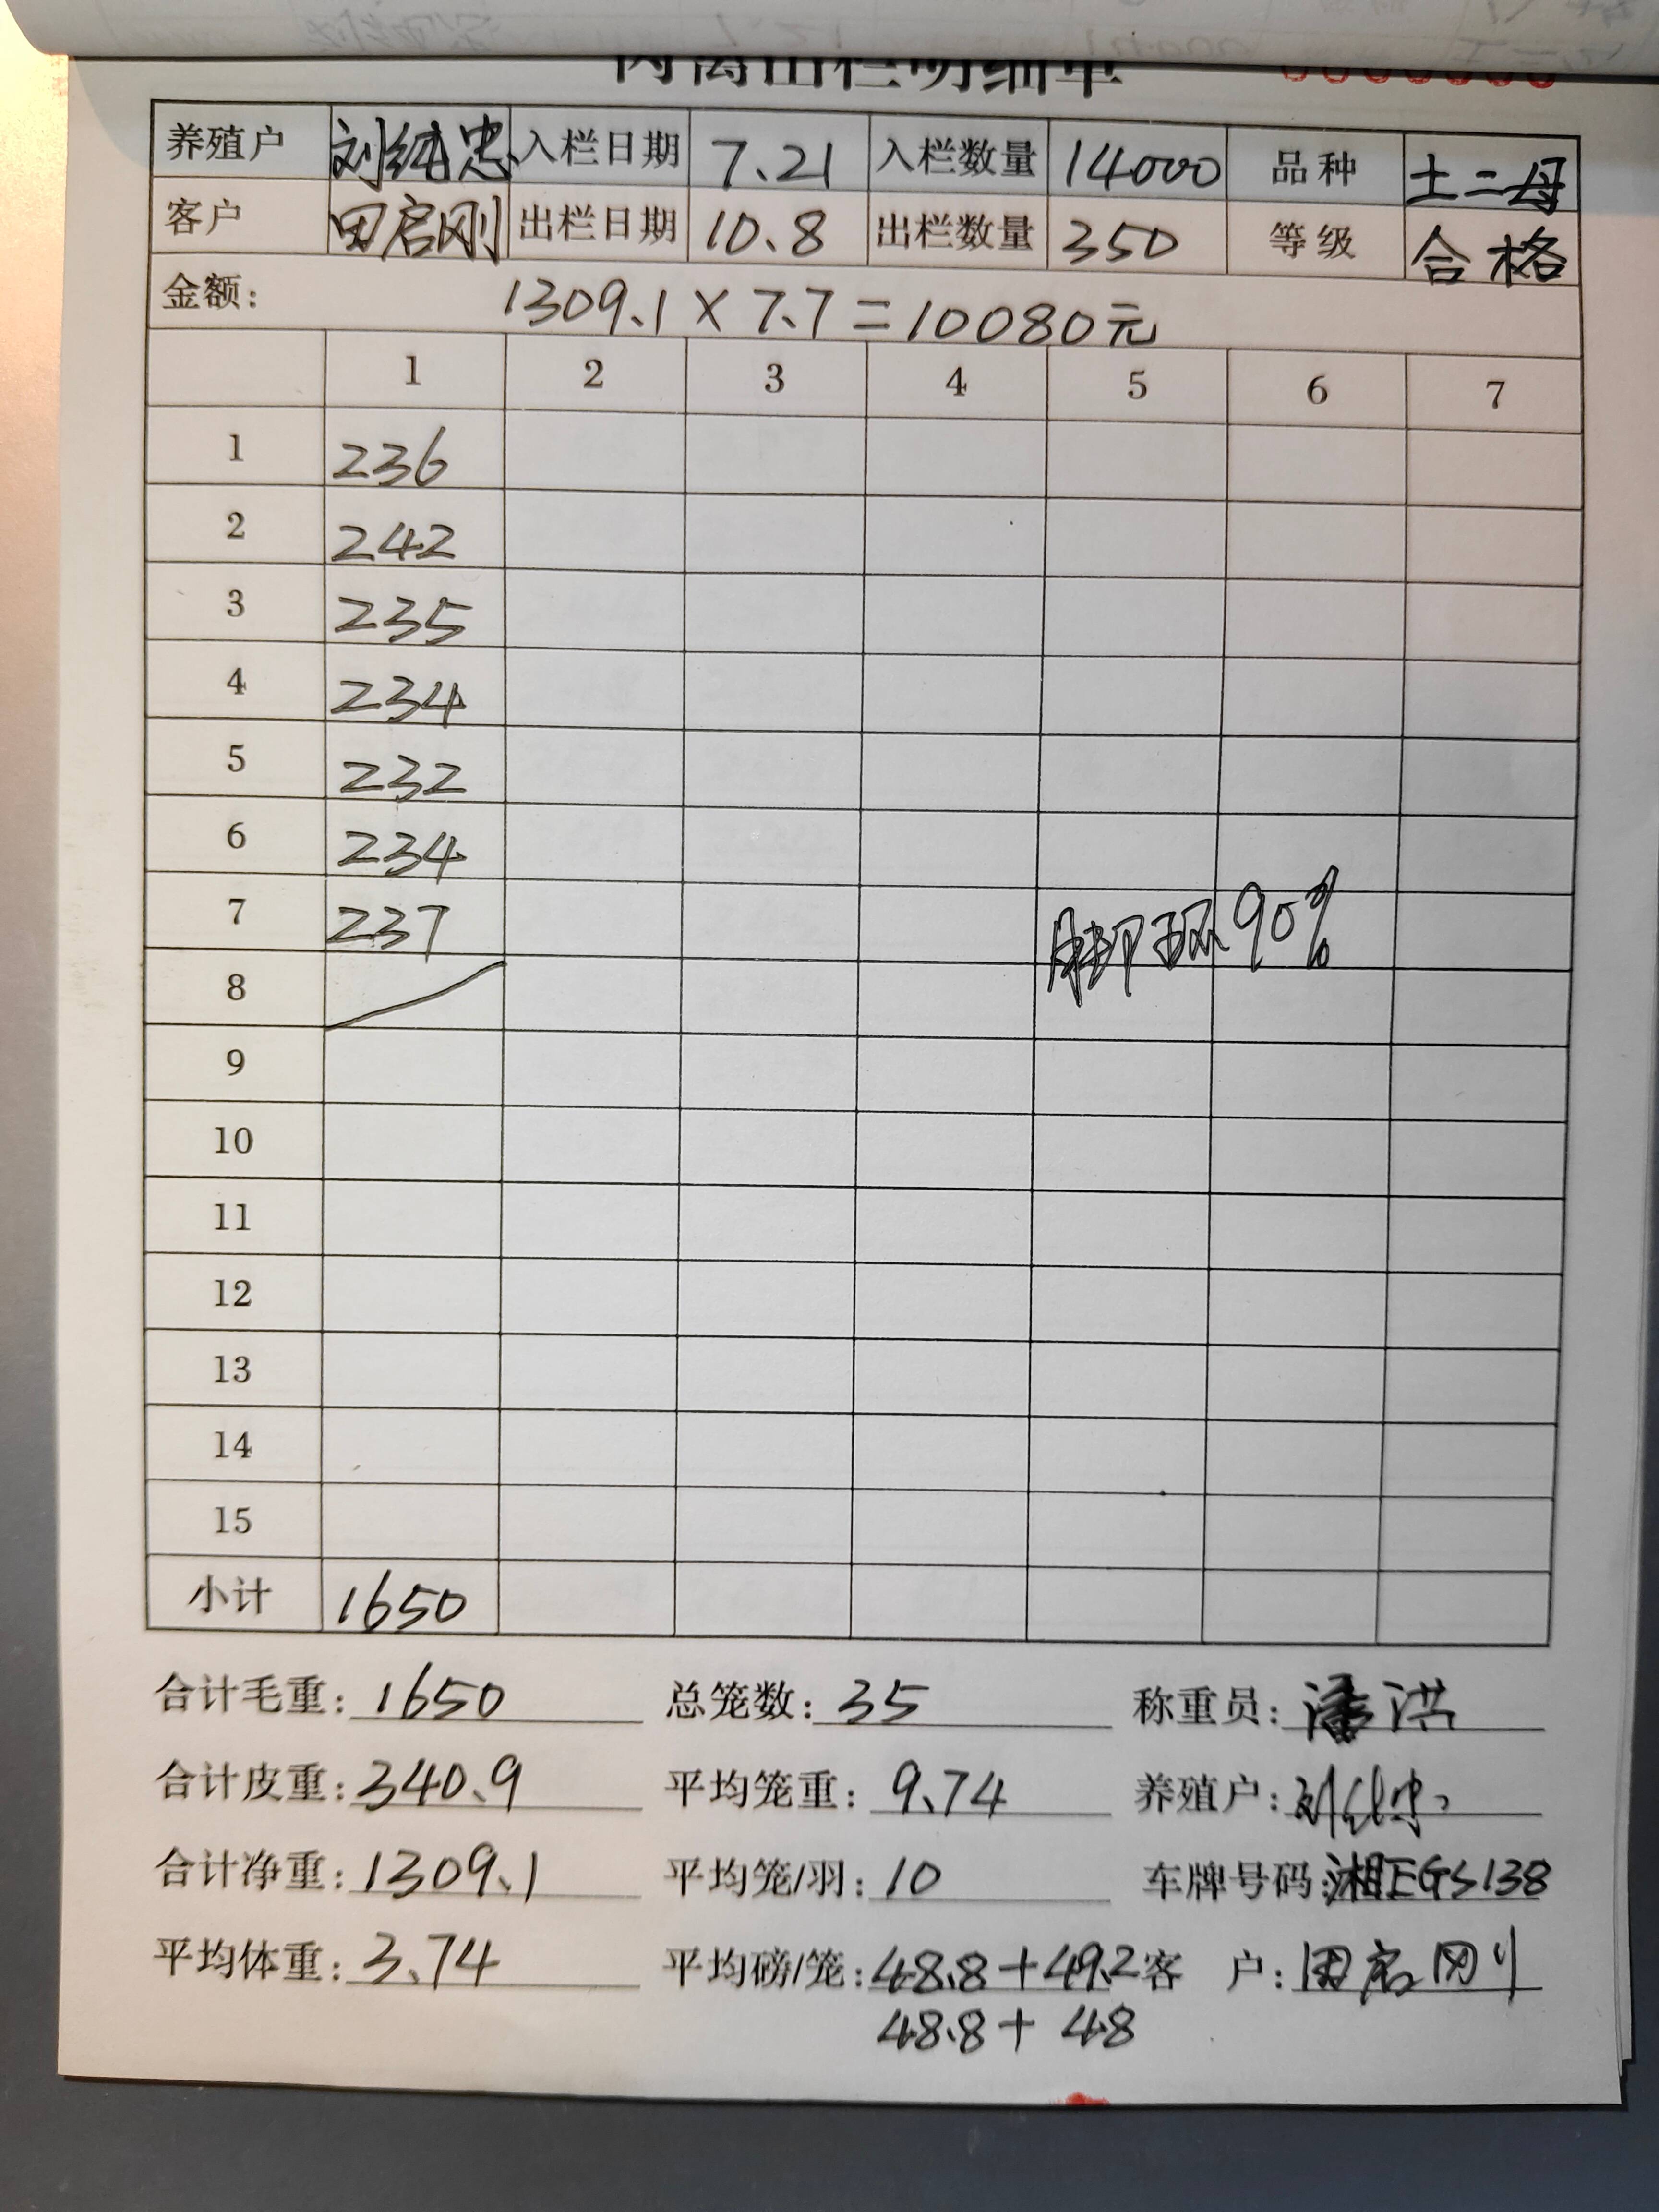 肉禽出栏明细单
养殖户 刘纯忠 入栏日期 7.21 入栏数量 14000 品种 土二母
客户 田启刚 出栏日期 10.8 出栏数量 350 等级 合格
金额: 1309.1×7.7=10080元
1 2 3 4 5 6 7
1 236
2 242
3 235
4 234
5 232
6 234
7 237 脚环90%
8
9
10
11
12
13
14
15
小计 1650
合计毛重: 1650 总笼数: 35 称重员: 潘洪
合计皮重: 340.9 平均笼重: 9.74 养殖户: 刘纯忠
合计净重: 1309.1 平均笼/羽: 10 车牌号码: 湘EGS138
平均体重: 3.74 平均磅/笼: 48.8+49.2 客 户: 田启刚
48.8+48